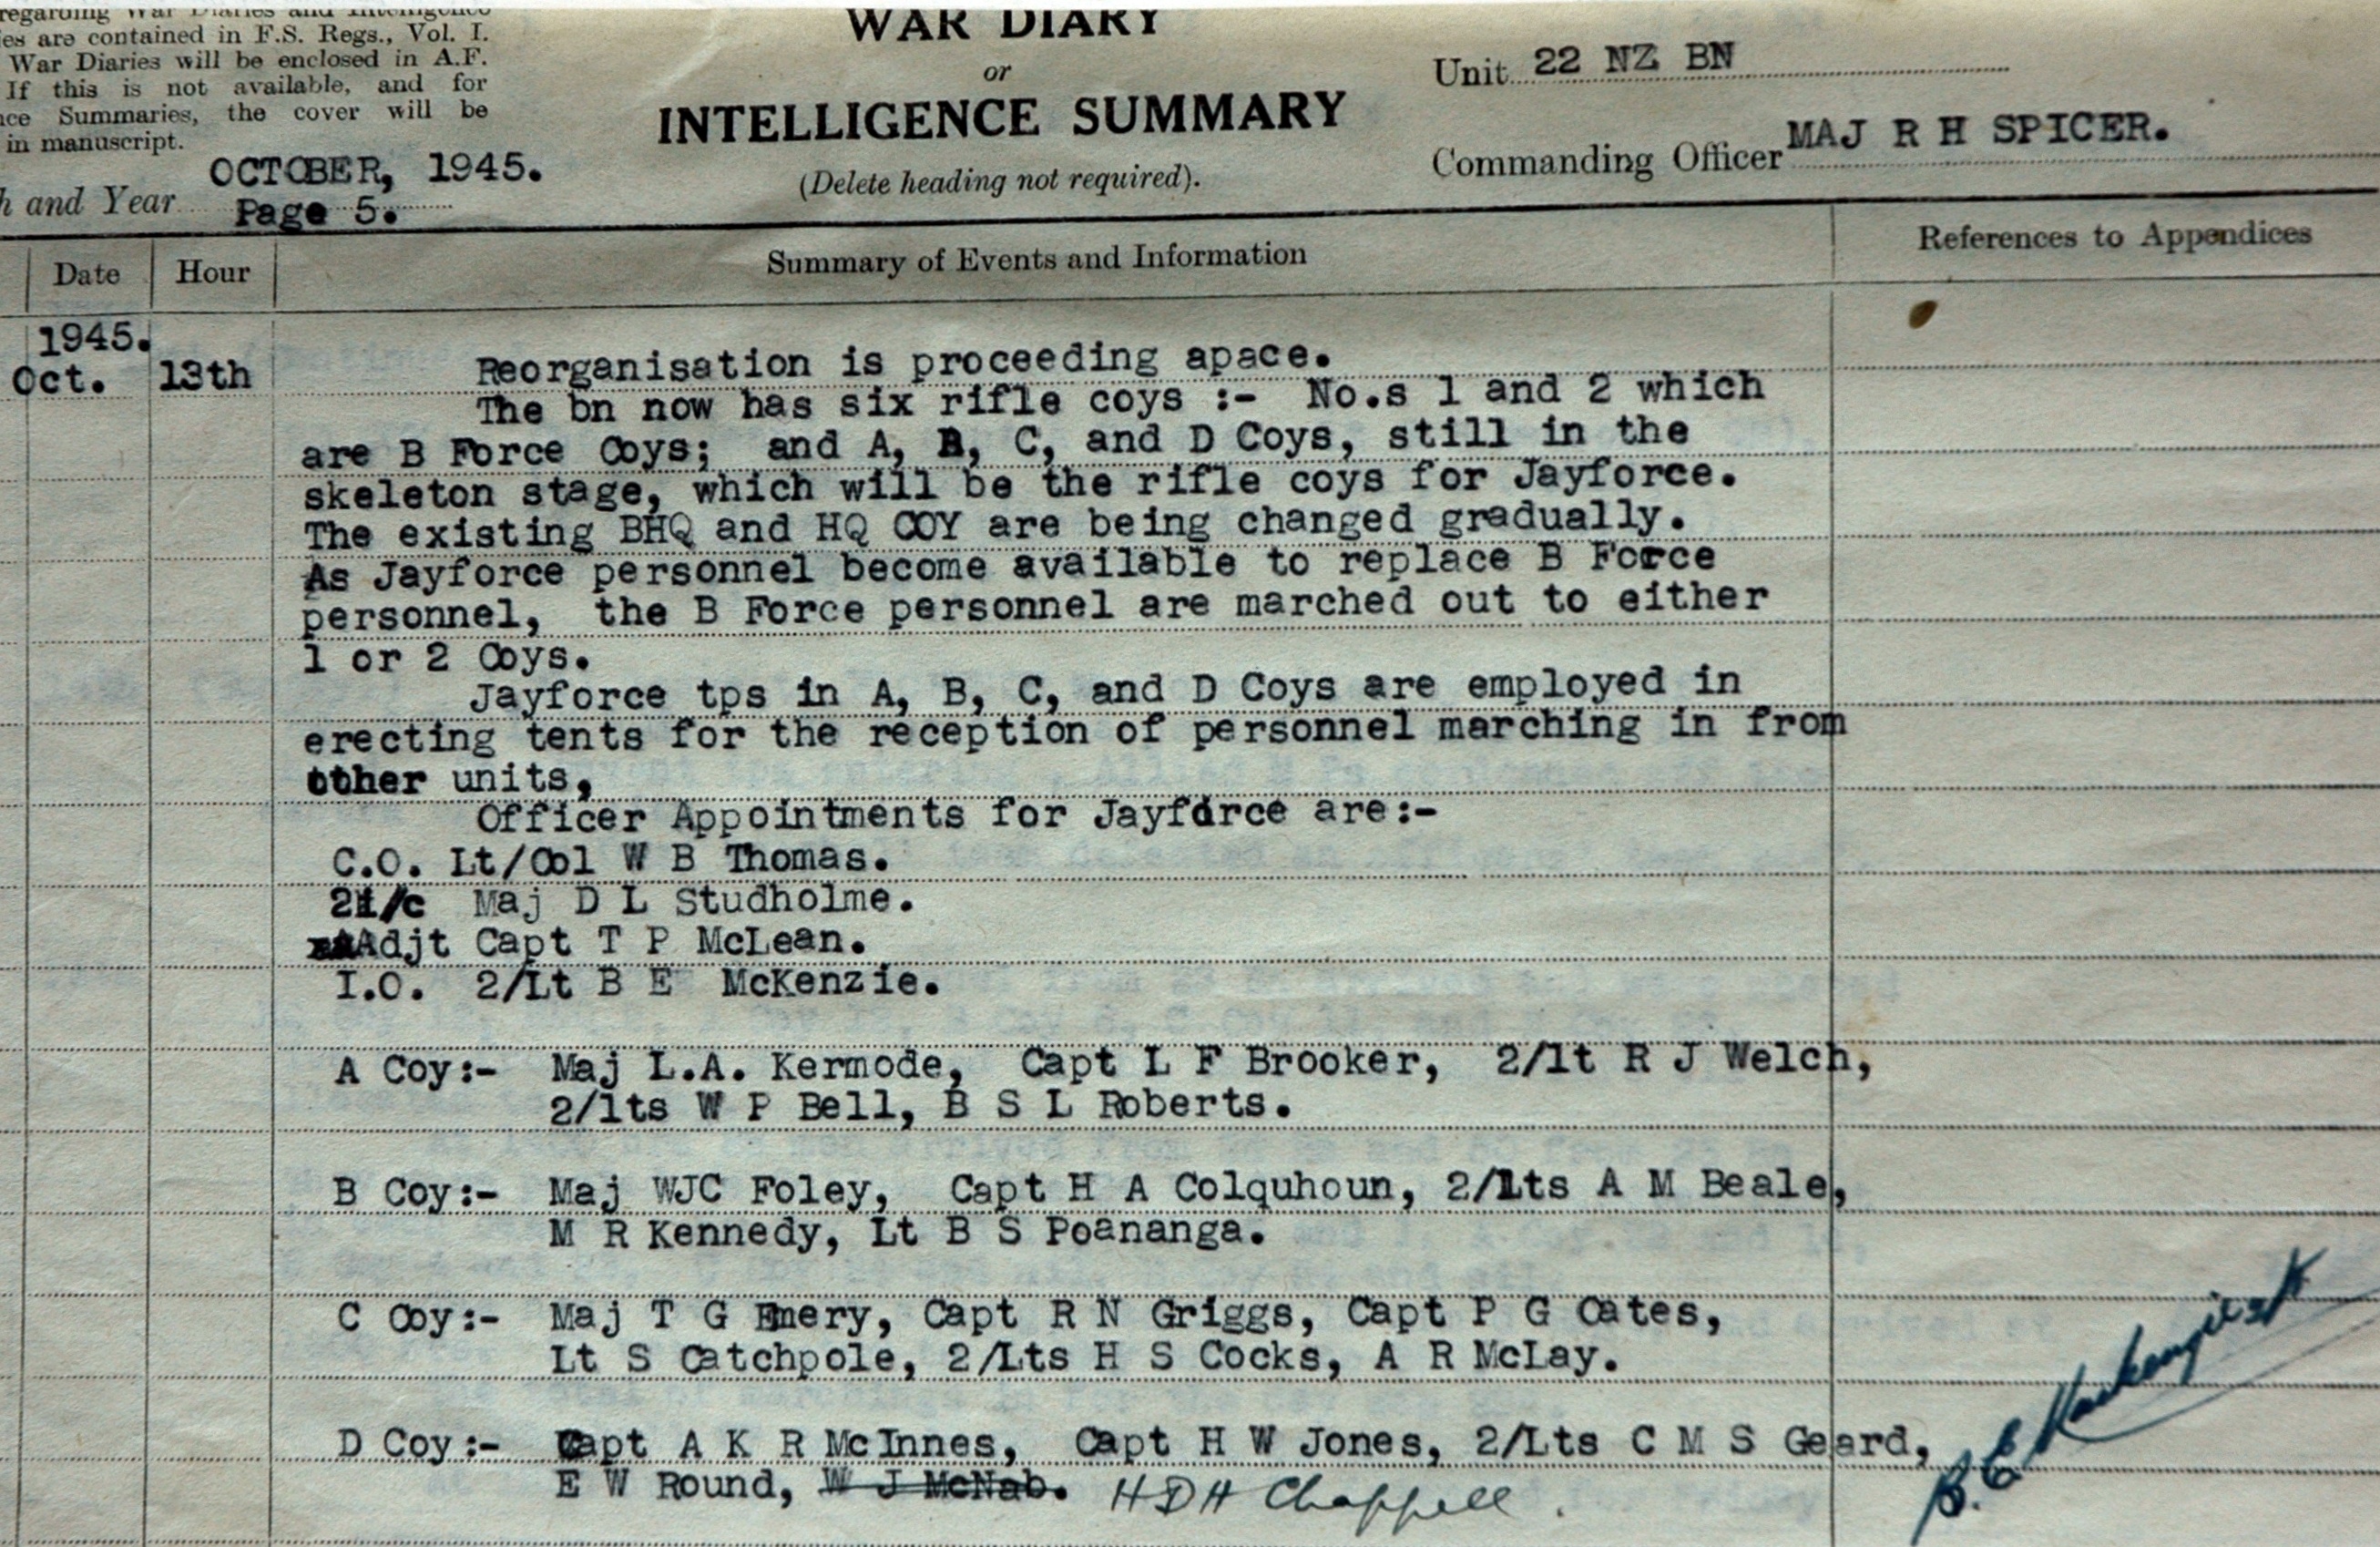 regarding War Diaries and Intelligence
es are contained in F.S. Regs., Vol. I.
War Diaries will be enclosed in A.F.
If this is not available, and for
nce Summaries, the cover will be
in manuscript.
h and Year OCTOBER, 1945.
Page 5.
WAR DIARY
or
INTELLIGENCE SUMMARY
(Delete heading not required).
Unit 22 NZ BN
Commanding Officer MAJ R H SPICER.
Date Hour Summary of Events and Information References to Appendices
1945.
Oct. 13th Reorganisation is proceeding apace.
The bn now has six rifle coys :- No.s 1 and 2 which
are B Force Coys; and A, B, C, and D Coys, still in the
skeleton stage, which will be the rifle coys for Jayforce.
The existing BHQ and HQ COY are being changed gradually.
As Jayforce personnel become available to replace B Force
personnel, the B Force personnel are marched out to either
1 or 2 Coys.
Jayforce tps in A, B, C, and D Coys are employed in
erecting tents for the reception of personnel marching in from
other units,
Officer Appointments for Jayforce are:-
C.O. Lt/Col W B Thomas.
2i/c Maj D L Studholme.
Adjt Capt T P McLean.
I.O. 2/Lt B E McKenzie.
A Coy:- Maj L.A. Kermode, Capt L F Brooker, 2/lt R J Welch,
2/lts W P Bell, B S L Roberts.
B Coy:- Maj WJC Foley, Capt H A Colquhoun, 2/Lts A M Beale,
M R Kennedy, Lt B S Poananga.
C Coy:- Maj T G Emery, Capt R N Griggs, Capt P G Oates,
Lt S Catchpole, 2/Lts H S Cocks, A R McLay.
D Coy:- Capt A K R McInnes, Capt H W Jones, 2/Lts C M S Geard,
E W Round, W J McNab. H D H Chappell.
B. E. Mackenzie